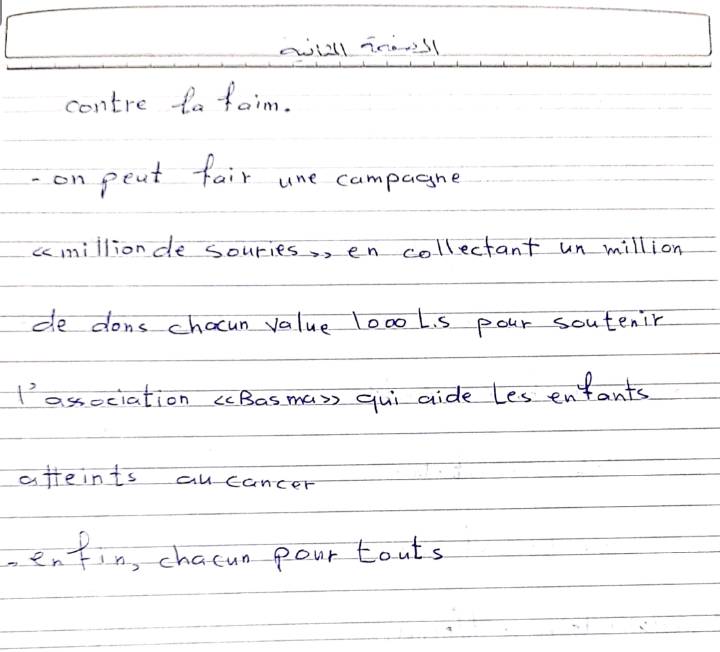 الصفحة الثانية
contre la faim.
- on peut fair une campagne
<<million de souries>> en collectant un million
de dons chacun value 1000 L.S pour soutenir
l'association <<Basma>> qui aide Les enfants
atteints au cancer
- enfin, chacun pour touts